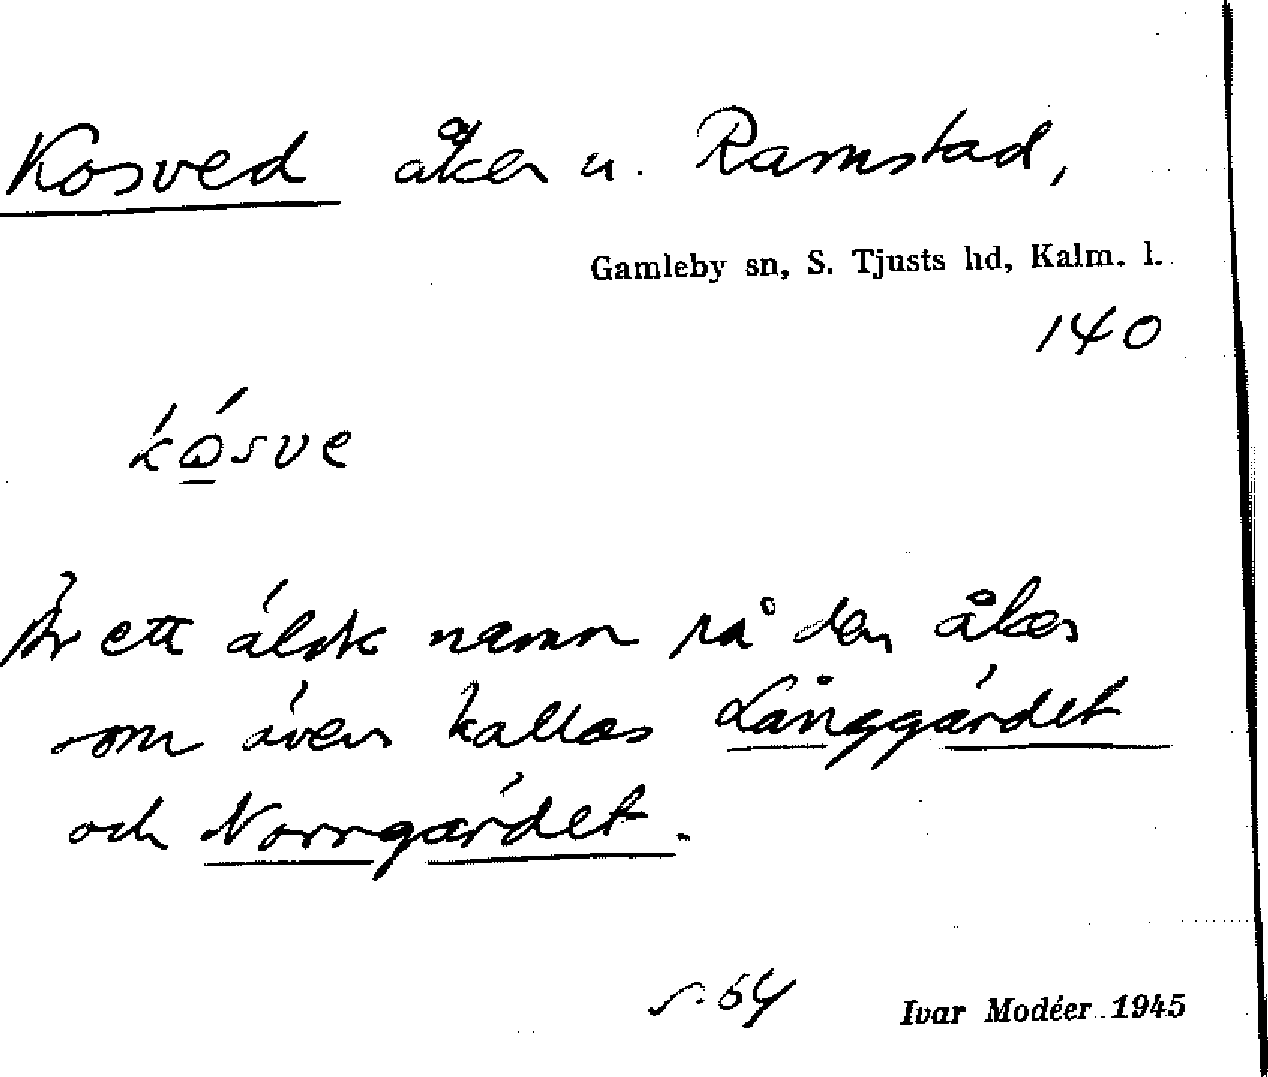 Kosved åker u. Ramstad,
Gamleby sn, S. Tjusts hd, Kalm. l.
140
Är ett äldr namn på den åker
som även kallas Långgärdet
och Norrgärdet.
s. 54
Ivar Modéer 1945